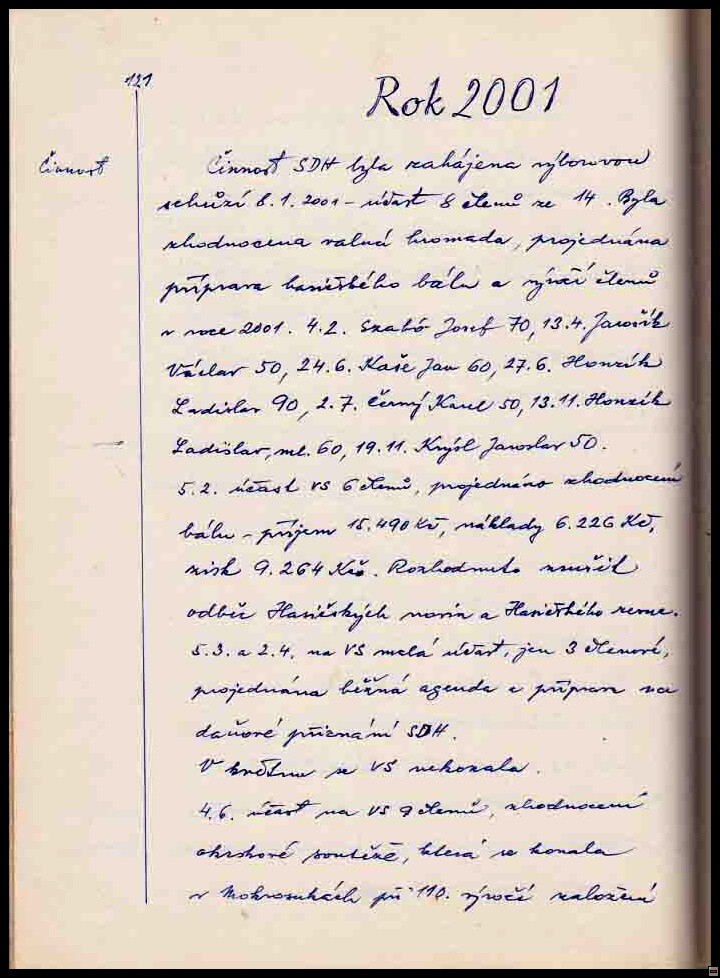 121
Rok 2001
Činnost
Činnost SDH byla zahájena výborovou
schůzí 8.1.2001 - účast 8 členů ze 14. Byla
zhodnocena valná hromada, projednána
příprava hasičského bálu a výročí členů
v roce 2001. 4.2. Szabó Josef 70, 13.4. Jarošík
Václav 50, 24.6. Kaše Jan 60, 27.6. Honzík
Ladislav 90, 2.7. Černý Karel 50, 13.11. Honzík
Ladislav, ml. 60, 19.11. Krýsl Jaroslav 50.
5.2. účast VS 6 členů, projednáno zhodnocení
bálu - příjem 15.490 Kč, náklady 6.226 Kč,
zisk 9.264 Kč. Rozhodnuto zrušit
odběr Hasičských novin a Hasičského revue.
5.3. a 2.4. na VS malá účast, jen 3 členové,
projednána běžná agenda a příprava na
daňové přiznání SDH.
V květnu se VS nekonala.
4.6. účast na VS 9 členů, zhodnocení
okrskové soutěže, která se konala
v Mokrosukách při 110. výročí založení